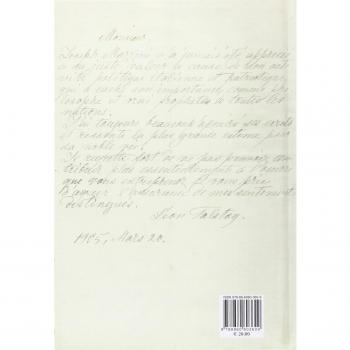 Monsieur,
Joseph Mazzini n'a jamais été apprécié
à sa juste valeur à cause de son acti
vité politique italienne et patriotique,
qui a caché son importance comme phi
losophe et vrai prophète à toutes les
nations.
J'ai toujours beaucoup
et la plus grande estime pour
sa noble vie.
Je regrette de ne pas pouvoir con
tribuer plus essentiellement à l'oeuvre
que vous entreprenez et vous prie
de mes sentiments
distingués.
Léon Tolstoy.
1905, Mars 20.
€ 20,00